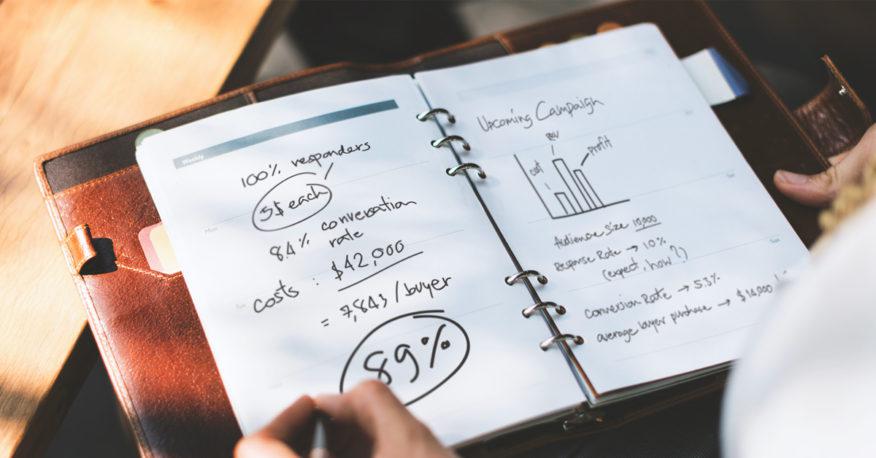 Weekly
100% responders
5$ each
84% conversation
rate
costs : $42,000
= 7,843 /buyer
89%
Upcoming Campaign
cost
rev
profit
Audience size 10,000
Response Rate → 10%
(expect, how?)
Conversion Rate → 5.3%
average buyer purchase → $10,000